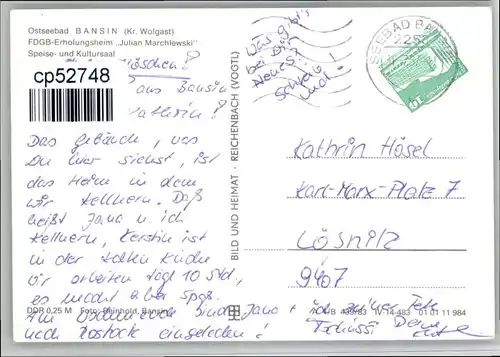 Ostseebad BANSIN (Kr. Wolgast)
FDGB-Erholungsheim „Julian Marchlewski"
Speise- und Kultursaal
cp52748
aus Bansin
Kathrin!
Das Gebäude, was
Du hier siehst, ist
das Heim in dem
wir kellnern. Daß
heißt Jana u. ich
kellnern, Kerstin ist
in der kalten Küche
wir arbeiten tägl 10 Std,
es macht aber Spaß.
Am sind Jana + ich zu einer Fete
nach Rostock eingeladen!
Tschüssi Deine
DDR 0,25 M Foto: Reinhold, Bansin
Was gibt's
bei Dir
Neues?
Schreib
mal!
BILD UND HEIMAT · REICHENBACH (VOGTL)
SEEBAD BA
2255
10
Kathrin Hösel
Karl-Marx-Platz 7
Lößnitz
9407
439/83 IV-14-483 01 01 11 984